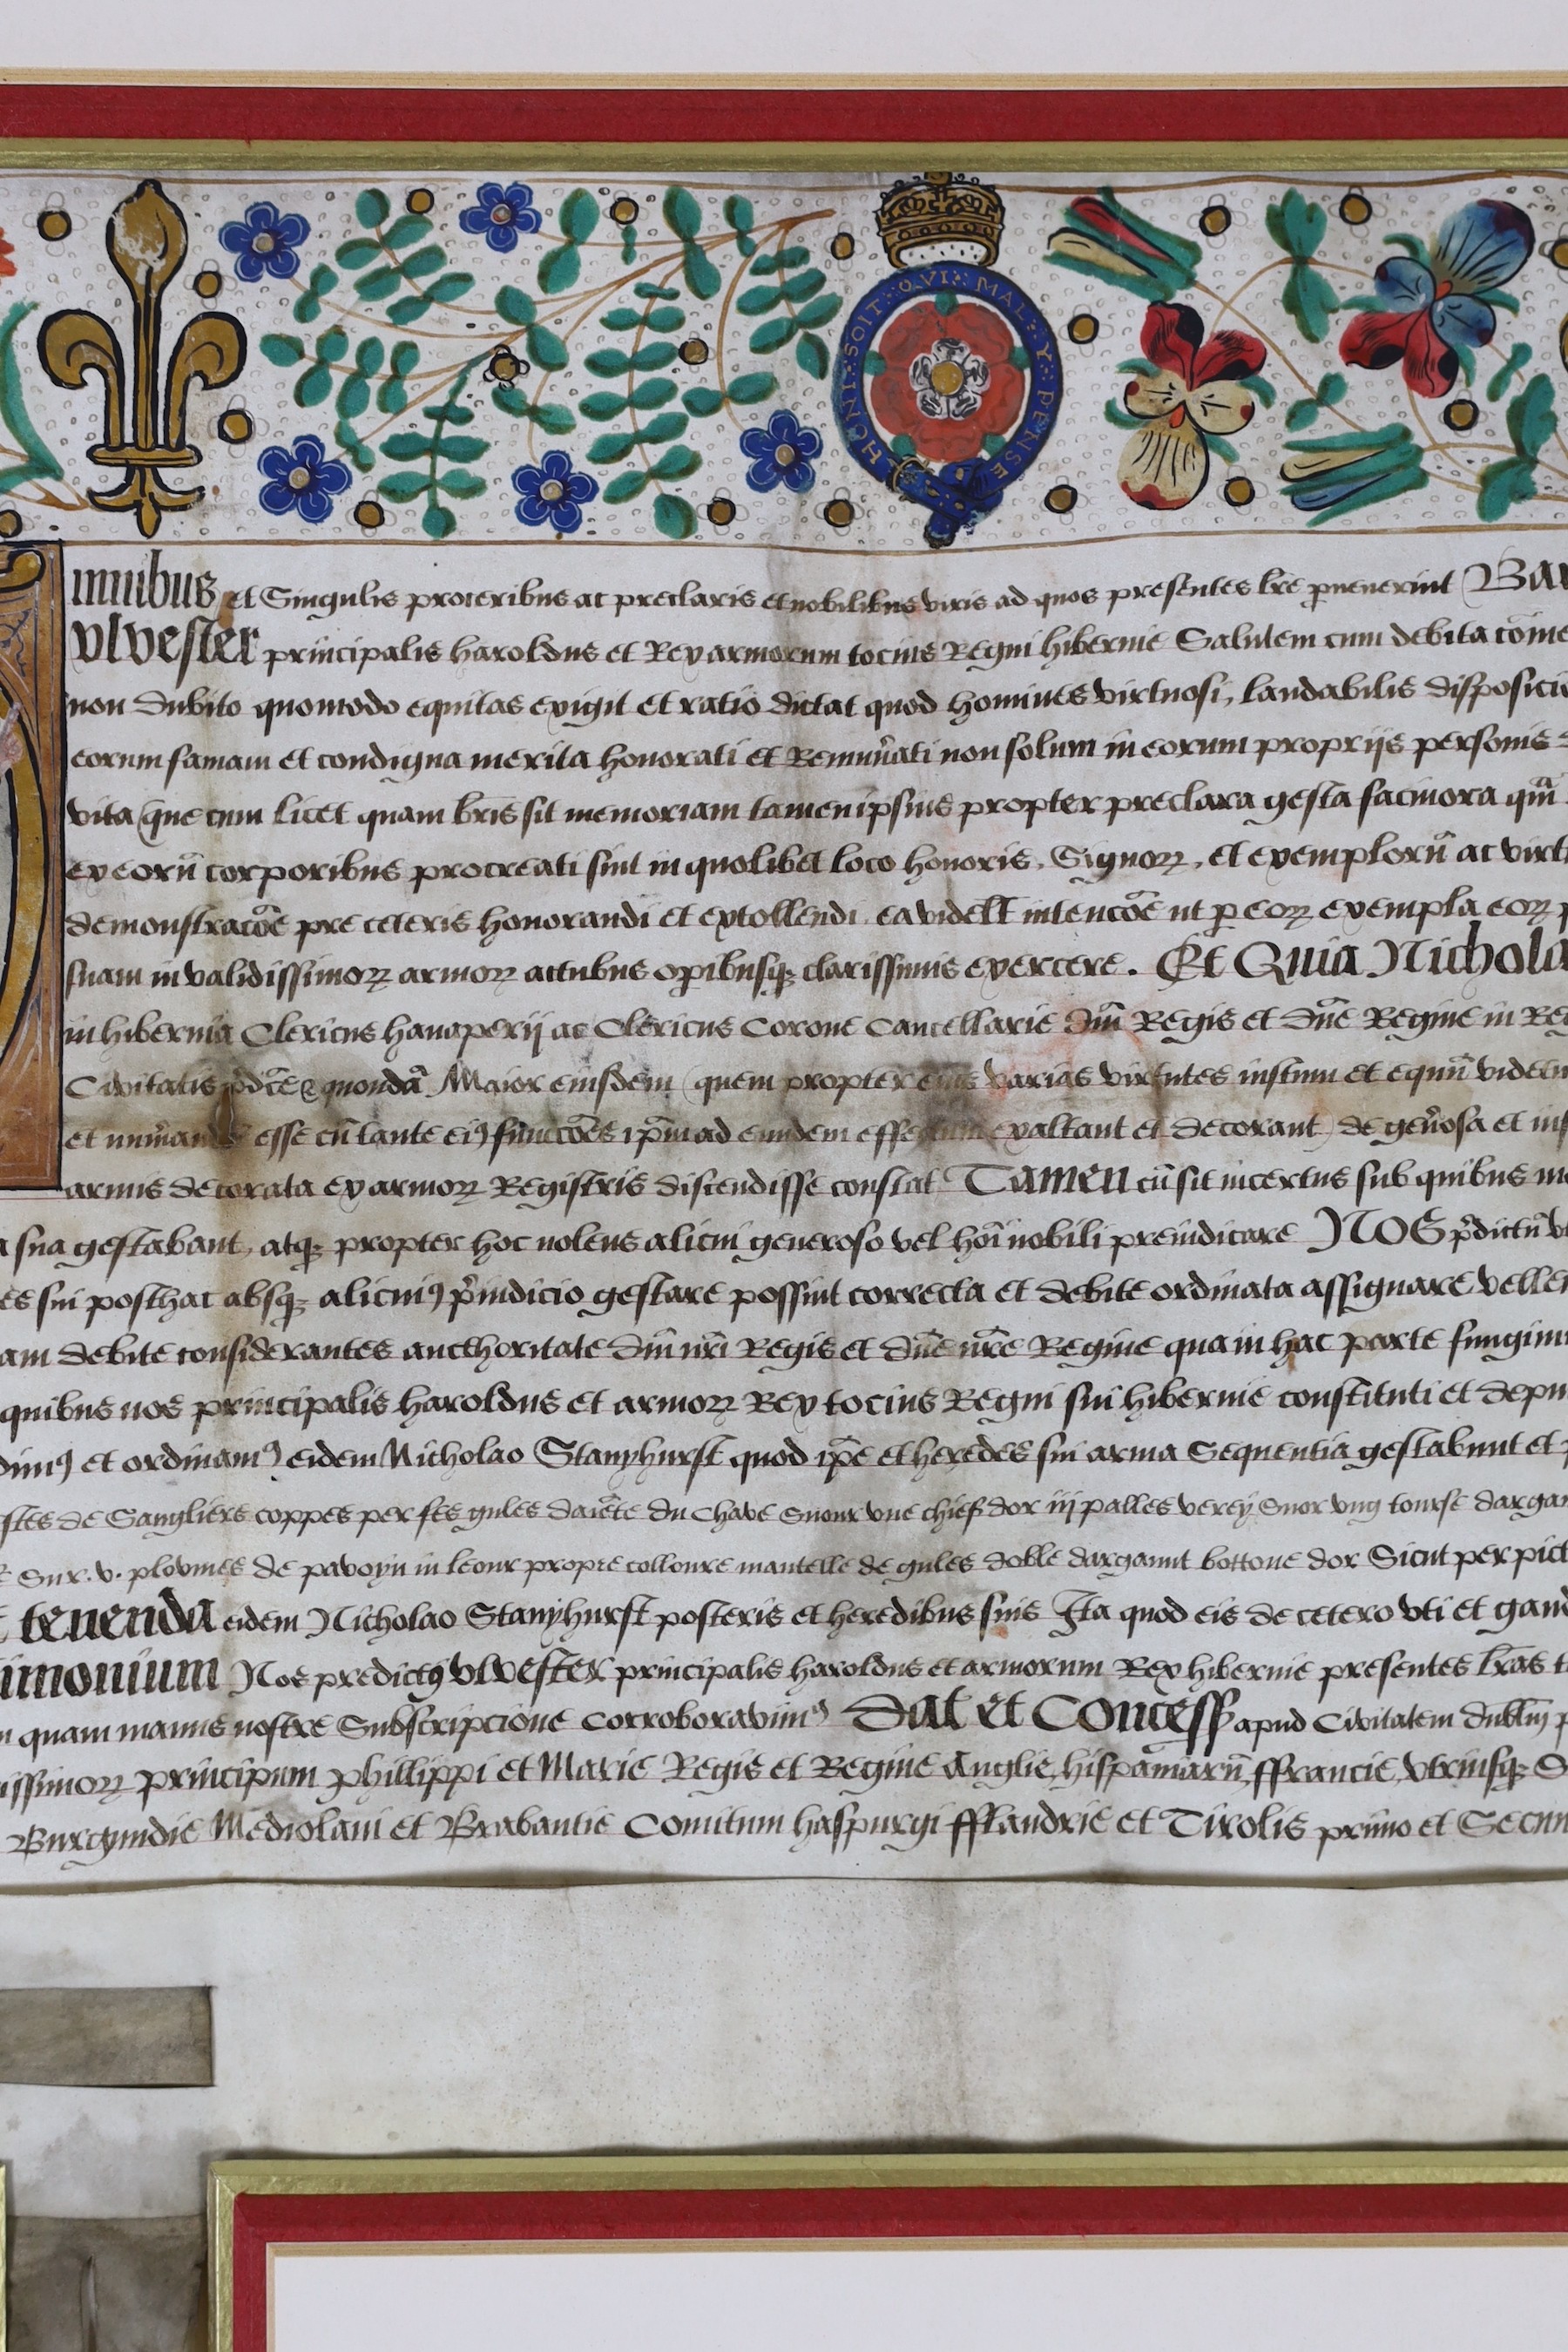 HONI : SOIT : QVI : MAL : Y : PENSE
mnibus et Singulis proceribus ac preclaris et nobilibus viris ad quos presentes lr̃e p̱uenerint Bar
vlvester principalis haroldus et Rex armorum tocius Regni hibernie Salutem cum debita
non dubito quomodo equitas exigit et ratio dictat quod homines virtuosi, laudabilis disposici
eorum famam et condigna merita honorati et Remun̾ati non solum in eorum proprijs personis
vita (que cum licet quam br̃is sit memoriam tamen ipsius propter preclara gesta facinora qm̃
ex eorũ corporibus procreati sint in quolibet loco honoris, Signoꝝ, et exemplorũ ac virt
demonstracõe pre ceteris honorandi et extollendi ea videlt intencõe ut ꝑ eoꝝ exempla eoꝝ
suam in validissimoꝝ armoꝝ actubus oꝑibusqꝫ clarissimis exercere. Et Quia Nichola
in hibernia Clericus hanaperij ac Clericus Corone Cancellarie dñi Regis et dñe Regine in Reg
Civitatis p̃dcẽ & quondã Maior eiusdem (quem propter eius varias virtutes iustum et equũ
et esse cũ tante eiꝰ funccões ip̃m ad eundem exaltant et decorant) de gen̾osa et
armis decorata ex armoꝝ Registris discendisse constat Tamen cũ sit incertus sub quibus
sua gestabant, atqꝫ propter hoc nolens alicui generoso vel hoĩ nobili preiudicare NOS p̃dictũ
es sui posthac absqꝫ alicuiꝰ p̃iudicio gestare possint correcta et debite ordinata assignare vellem
am debite considerantes aucthoritate dñi nr̃i Regis et dñe nr̃e Regine qua in hac parte fungim
quibus nos principalis haroldus et armoꝝ Rex tocius Regni sui hibernie constituti et depu
dimꝰ et ordinamꝰ eidem Nicholao Stanyhurst quod ip̃e et heredes sui arma Sequentia gestabunt et
stes de Sangliers coppes per fes gules du Chave Suour vne chief dor iij palles verey Suor vng tourse dargan
Sur .v. plovmes de pavoyn in leour propre colloure mantelle de gules doble dargaunt bottone dor Sicut per pict
tenenda eidem Nicholao Stanyhurst posteris et heredibus suis Ita quod eis de cetero vti et gaud
imonium Nos predictꝰ vlvester principalis haroldus et armorum Rex hibernie presentes lr̃as
quam manus nostre Subscripcione Corroboravimꝰ Dat et Concess apud Civitatem dublin
issimoꝝ principum phillippi et Marie Regis et Regine Anglie, hispaniarũ, ffrancie, vtriusqꝫ S
Burgundie Mediolani et Brabantie Comitum haspurgi fflandrie et Tirolis primo et Secun